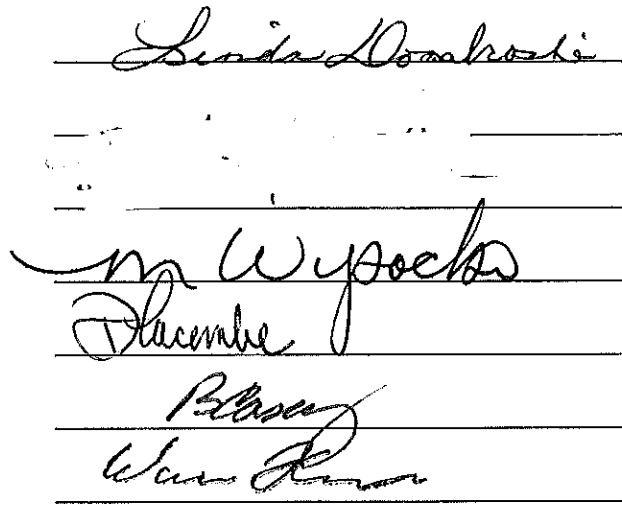 Linda Dombroski
M Wysocki
D Lacombe
B Casey